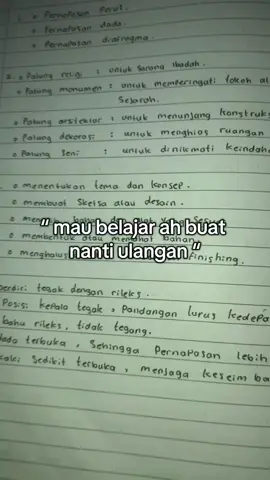 1. • Pernapasan Perut.
• Pernapasan dada.
• Pernapasan diafragma.
2. • Patung religi : untuk Sarana Ibadah.
• Patung monumen : untuk memperingati tokoh
Sejarah.
• Patung arsitektur : untuk menunjang konstruk
• Patung dekorasi : untuk menghias ruangan
• Patung Seni : untuk dinikmati keindah
• menentukan tema dan konsep.
• membuat Sketsa atau desain.
“ mau belajar ah buat
nanti ulangan ”
• membentuk atau bahan
• finishing.
berdiri tegak dengan rileks.
Posisi kepala tegak, Pandangan lurus kedepa
bahu rileks, tidak tegang.
dada terbuka, Sehingga Pernapasan lebih
kaki Sedikit terbuka, menjaga keseimba